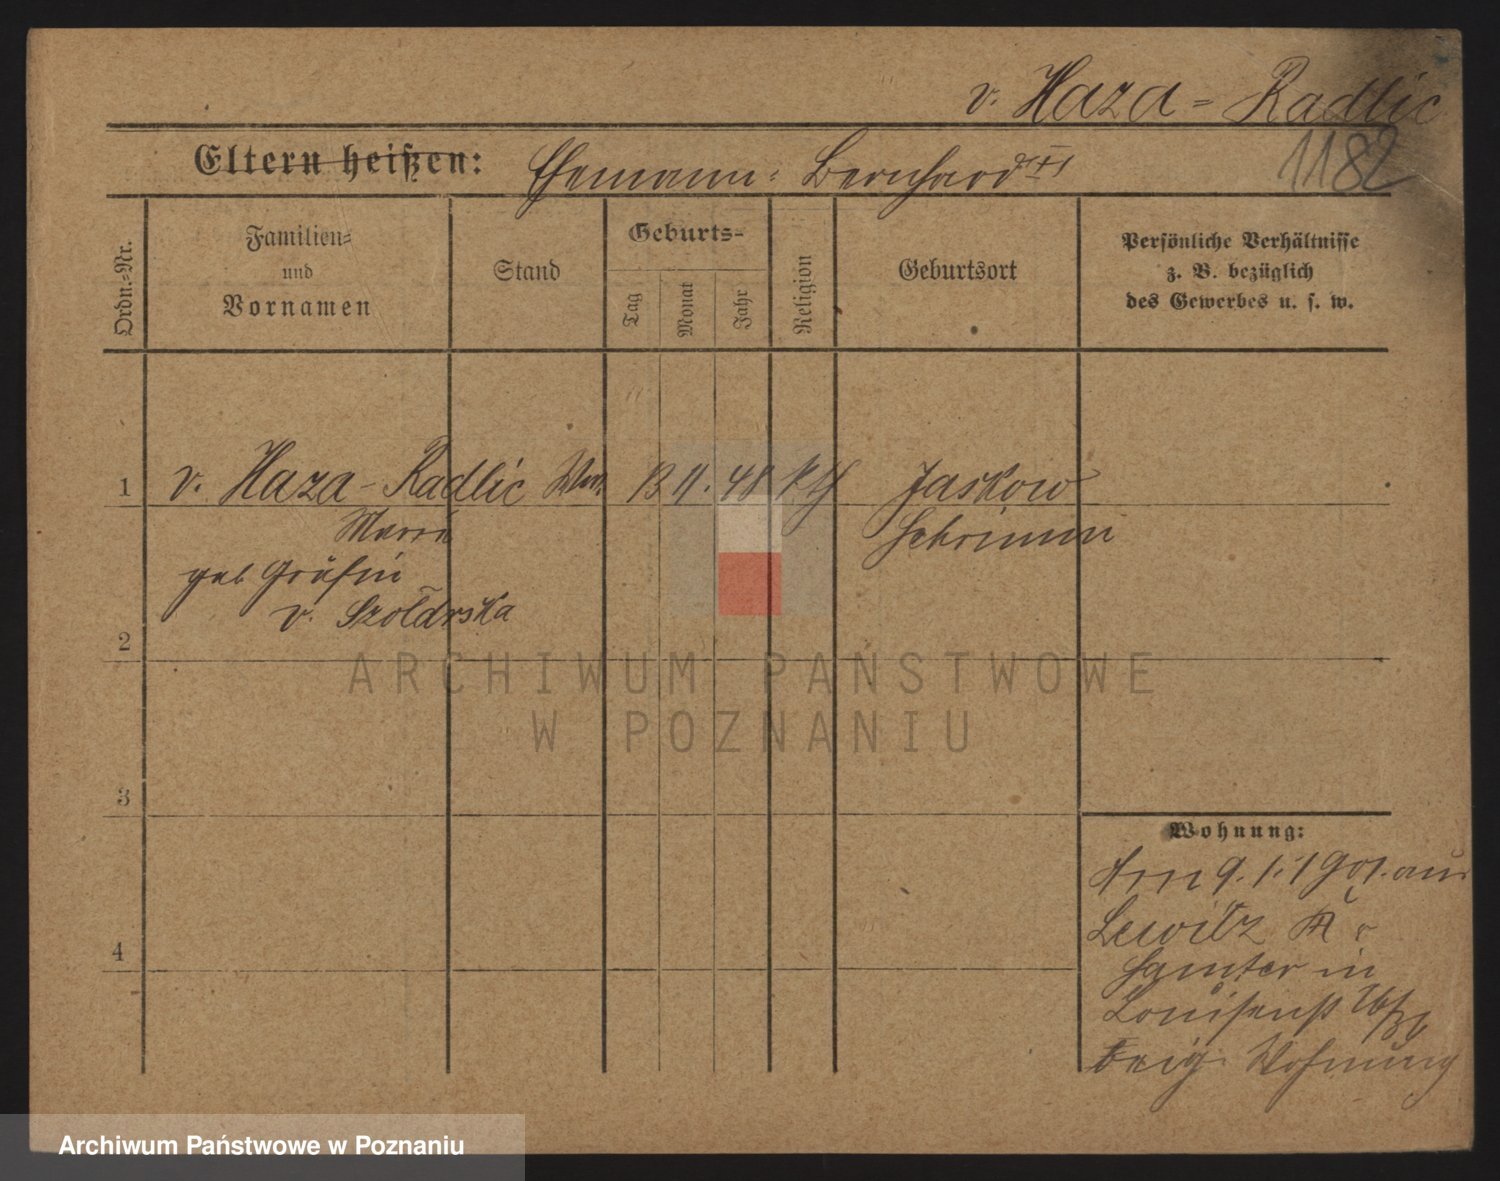 v. Haza-Radlic
1182
Eltern heißen: Ehemann: Bernhard
Ordn.-Nr.
Familien-
und
Vornamen
Stand
Geburts-
Tag
Monat
Jahr
Religion
Geburtsort
Persönliche Verhältnisse
z. B. bezüglich
des Gewerbes u. s. w.
1 v. Haza-Radlic Ww. 13 11. 48 Kth Jaskow
Maria Schrimm
geb Gräfin
v. Szoldrska
2
3
4
Wohnung:
Am 9.1.1901. aus
Lewitz Kr
Samter in
Louisenst
eig. Wohnung
ARCHIWUM PAŃSTWOWE
W POZNANIU
Archiwum Państwowe w Poznaniu